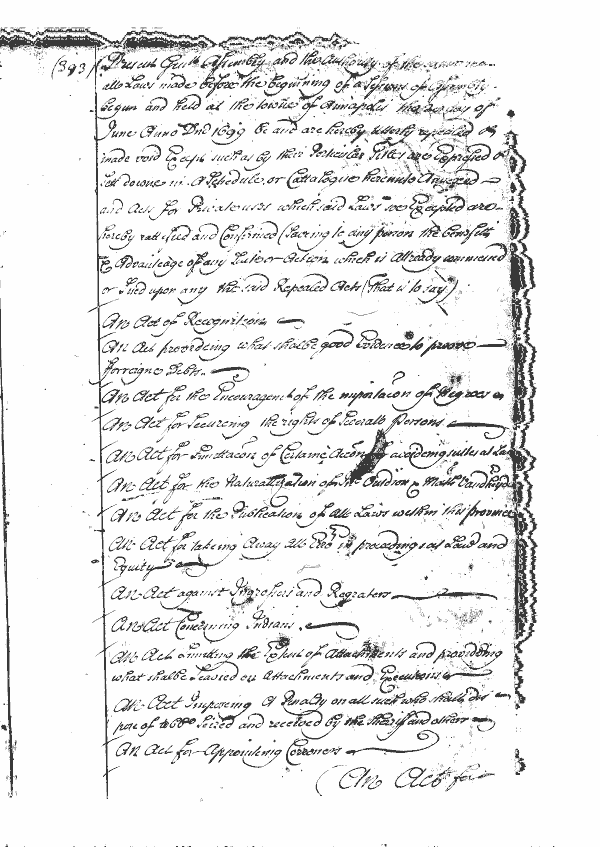 (393) Present Genll Assembly and the Authority of the same
all Laws made before the beginning of a Session of Assembly
begun and held at the towne of Annapolis the day of
June Anno Dni 1699 be and are hereby utterly repealed &
made void Except such as by their Perticular Titles are Expressed &
sett downe in A Schedule or Cattalogue hereunto Annexed
and Acts for Private uses which said Laws so Excepted are
hereby rattified and Confirmed (Saveing to any person the benefitt
& Advantage of any Suite or Action which is Already commenced
or Sued upon any the said Repealed Acts (That is to say)
An Act of Recognition
An Act provideing what shalbe good Evidence to proove
fforreigne Debts.
An Act for the Encouragemt of the importacon of Negroes
An Act for Secureing the rights of Severall Persons
An Act for Limittacon of Certaine Accons for avoideing suites at Law
An Act for the Naturallization of
An Act for the Publication of all Laws within this province
An Act for takeing Away all in proceedings at Law and
Equity
An Act against Ingrosers and Regraters
An Act Concerning Indians.
An Act Limitting the Extent of Attachments and provideing
what shalbe Leavied on Attachments and Executions
An Act Imposeing A Penalty on all such who shall dis
pose of Seized and received by the Sheriff and others
An Act for Appointing Corroners
(An Act for